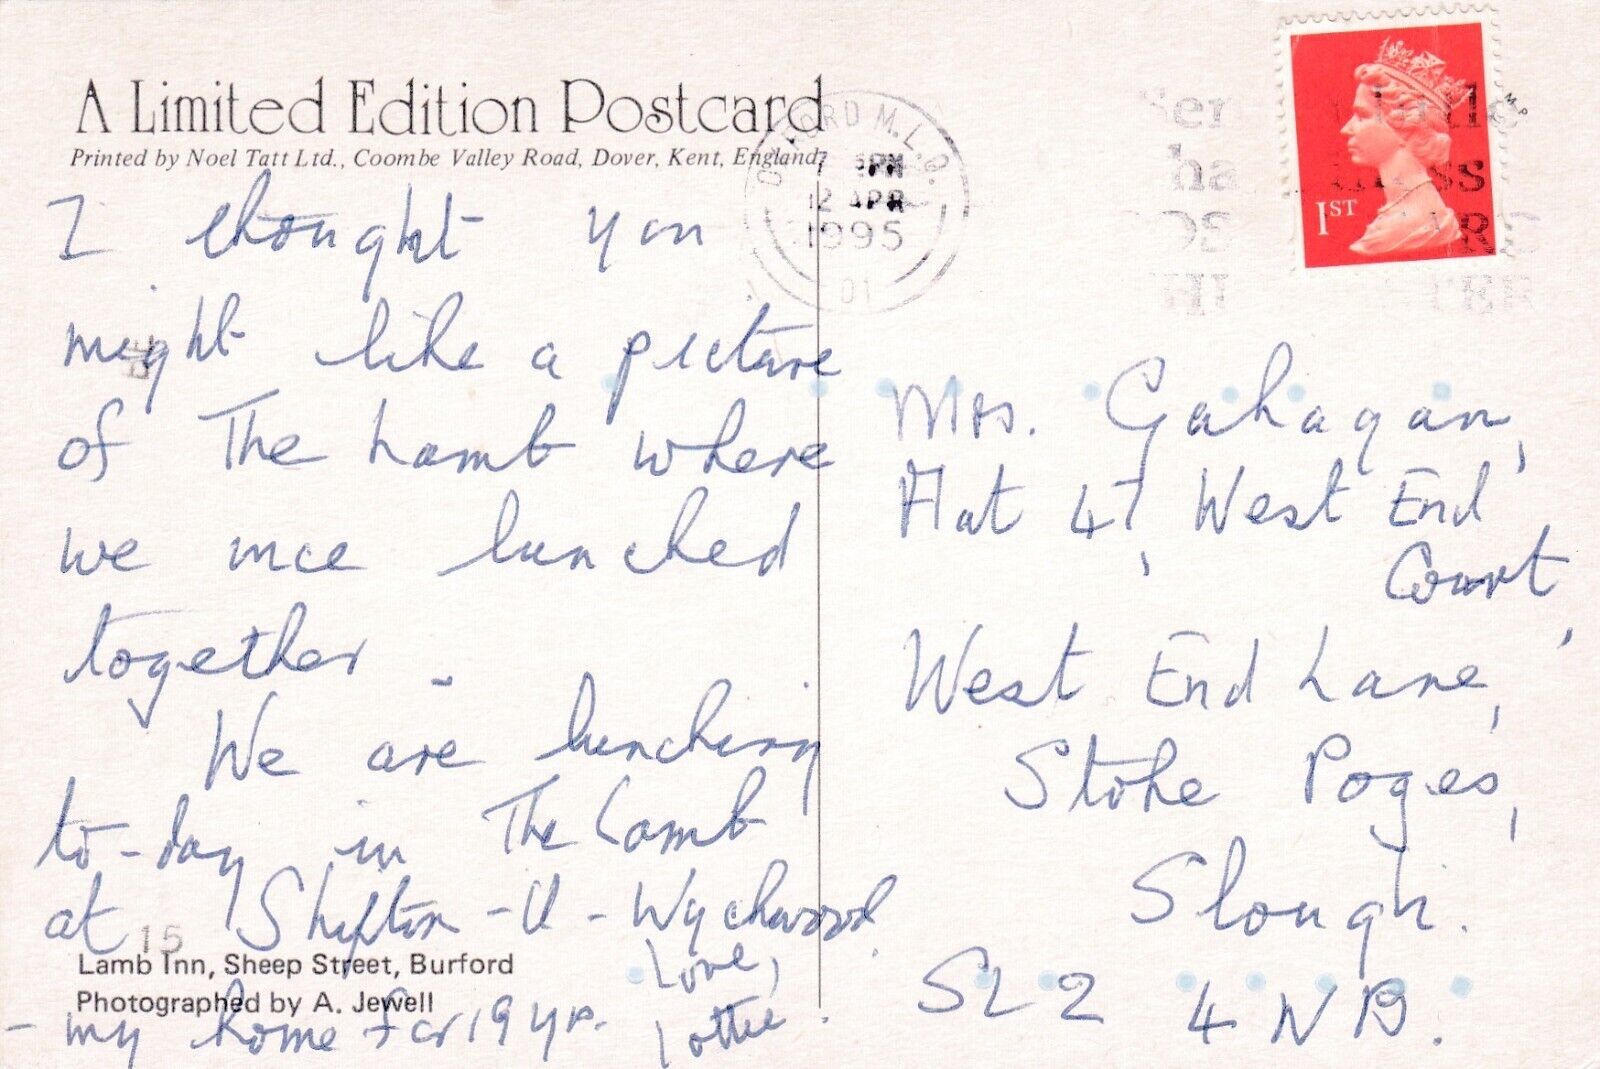 A Limited Edition Postcard
Printed by Noel Tatt Ltd., Coombe Valley Road, Dover, Kent, England.
I thought you
might like a picture
of The Lamb where
we once lunched
together.
We are lunching
to-day in The Lamb
at Shipton-U-Wychwood.
- my home for 19 yrs.
Love,
Lottie.
15
Lamb Inn, Sheep Street, Burford
Photographed by A. Jewell
OXFORD M.L.O.
PM
12 APR
1995
01
1ST
Mrs. Gahagan,
Flat 47, West End
Court,
West End Lane,
Stoke Poges,
Slough.
SL2 4NB.